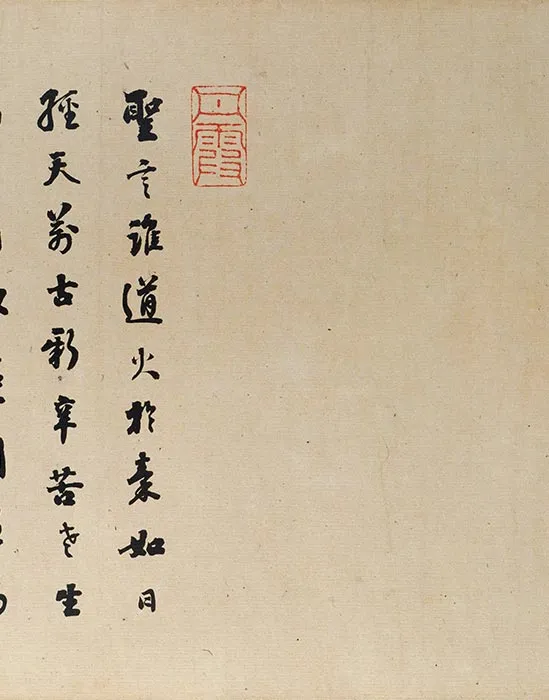 丹霞
聖言誰道火於秦如日
經天萬古新辛苦老生